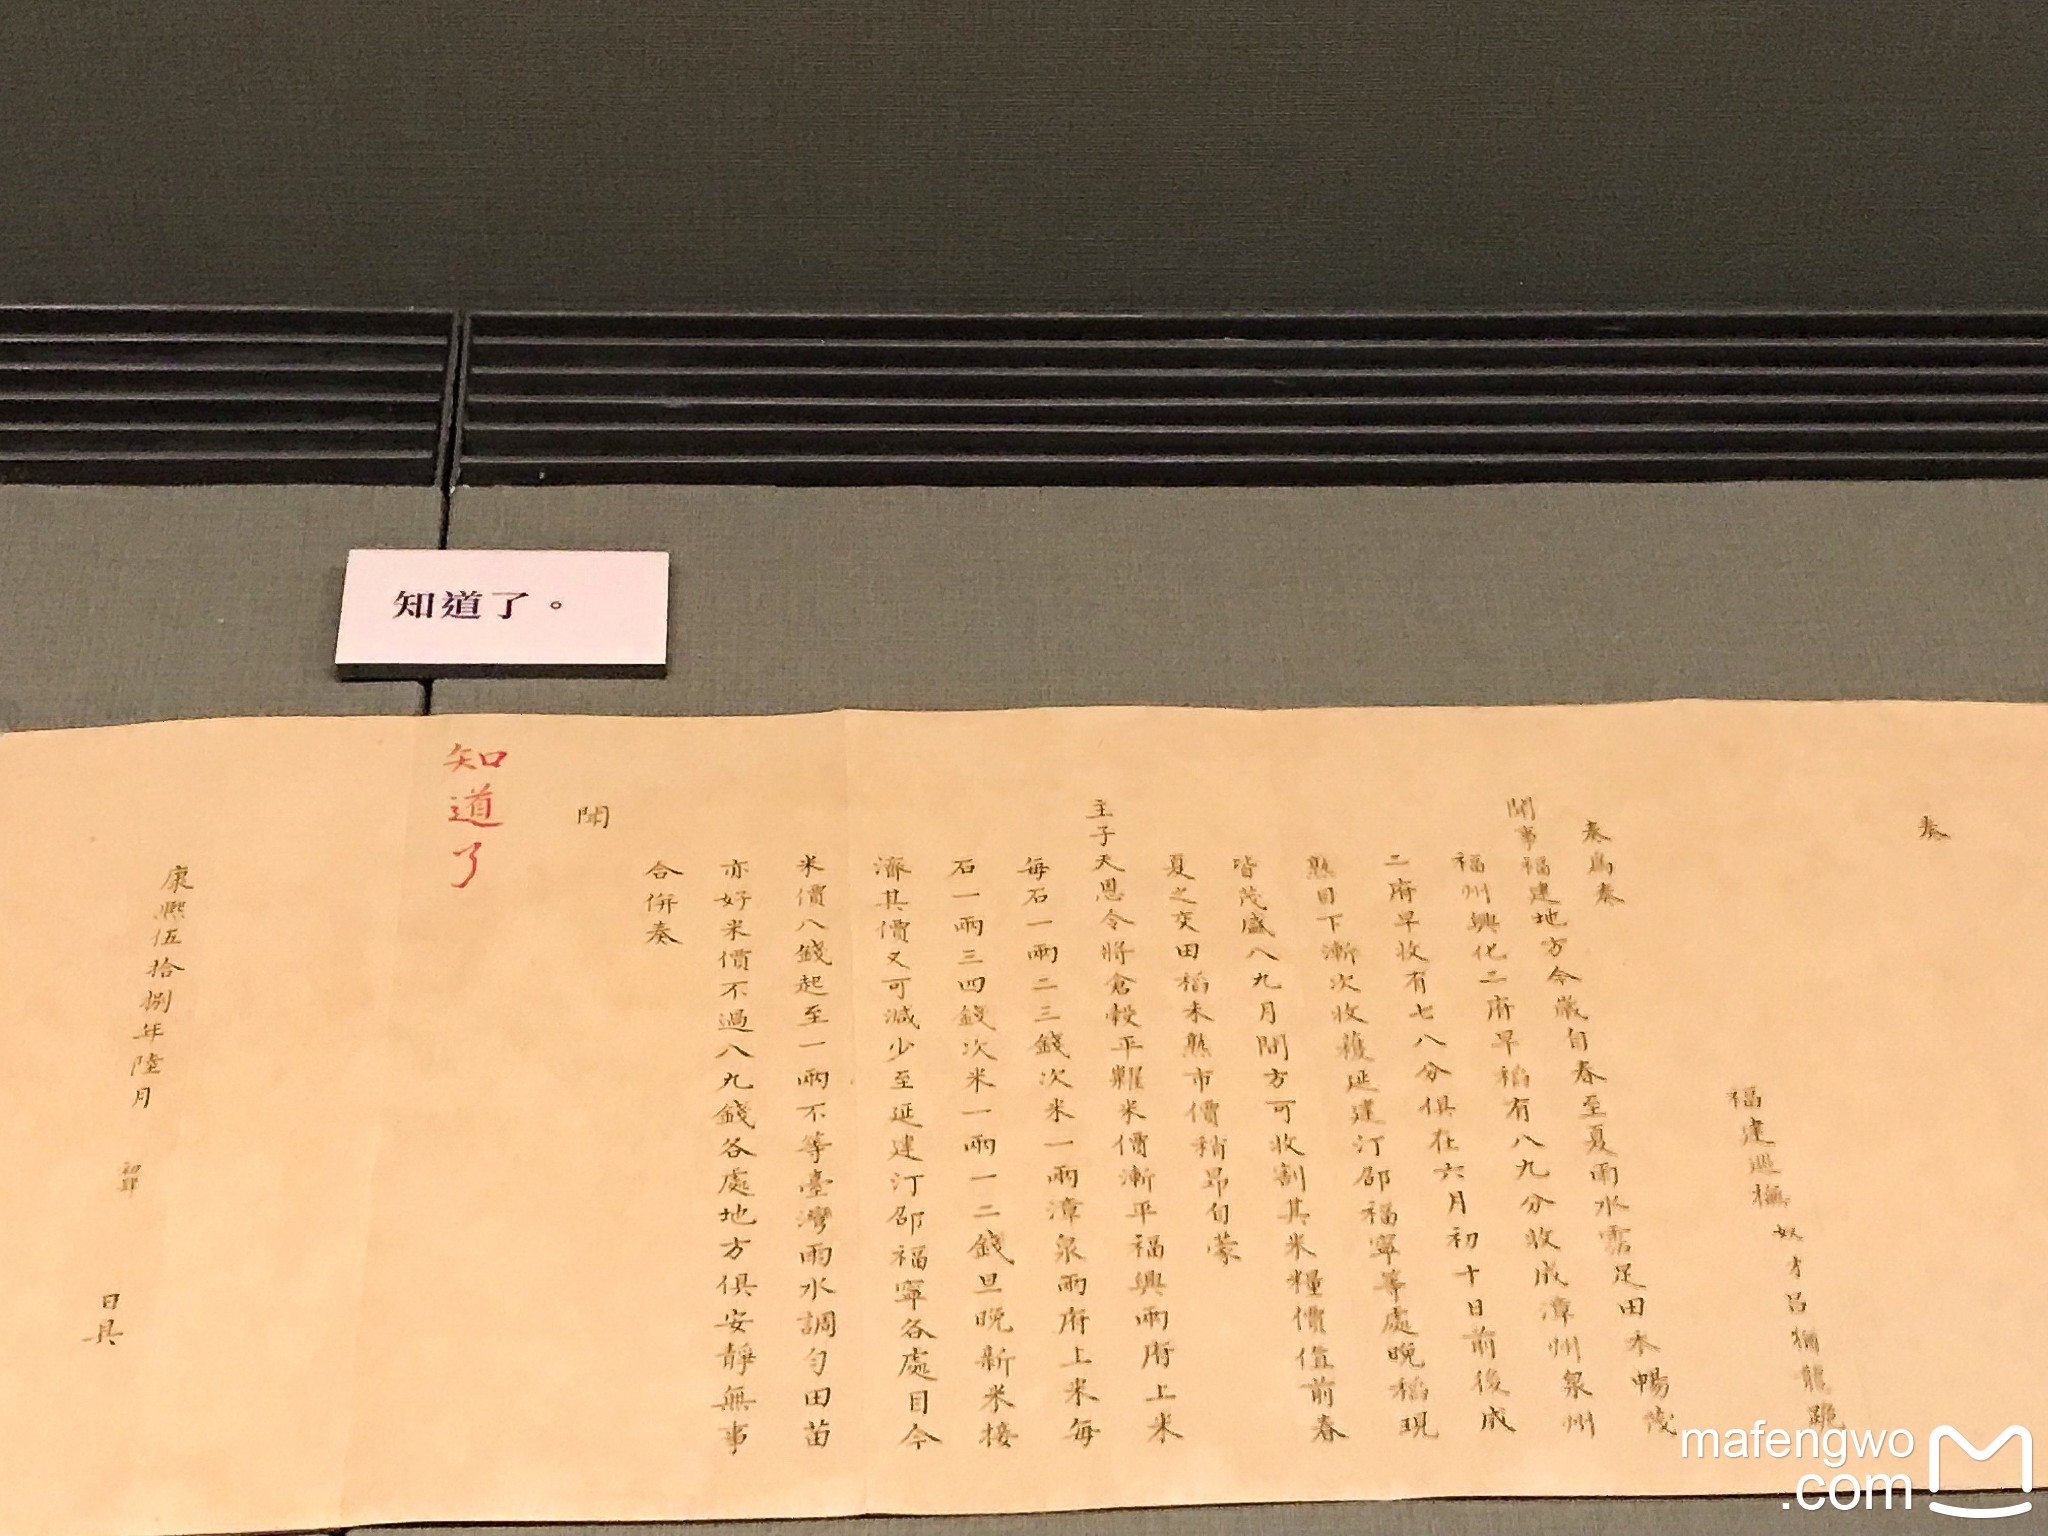 知道了。
奏
福建巡撫奴才呂猶龍跪
奏為奏
聞事福建地方今歲自春至夏雨水霑足田禾暢茂
福州興化二府早稻有八九分收成漳州泉州
二府早收有七八分俱在六月初十日前後成
熟目下漸次收穫延建汀邵福寧等處晚稻現
皆茂盛八九月間方可收割其米糧價值前春
夏之交田稻未熟市價稍昂旬蒙
主子天恩令將倉穀平糶米價漸平福興兩府上米
每石一兩二三錢次米一兩漳泉兩府上米每
石一兩三四錢次米一兩一二錢旦晚新米接
濟其價又可減少至延建汀邵福寧各處目今
米價八錢起至一兩不等臺灣雨水調勻田苗
亦好米價不過八九錢各處地方俱安靜無事
合併奏
聞
知道了
康熙伍拾捌年陸月 日具
mafengwo
.com